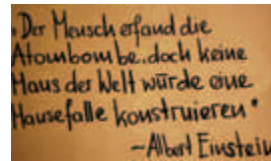 "Der Mensch erfand die
Atombombe..doch keine
Maus der Welt würde eine
Mausefalle konstruieren"
~Albert Einstein